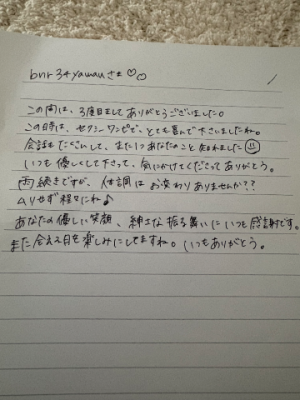 bnr34yawauさま♡
この間は、3度目ましてありがとうございました。
この時は、セクシーワンピで、とても喜んで下さいましたね。
会話もたくさんして、また1つあなたのこと知れました
いつも優しくして下さって、気にかけてくださってありがとう。
雨続きですが、体調はお変わりありませんか??
ムリせず程々にね♪
あなたの優しい笑顔、紳士な振る舞いにいつも感謝です。
また会える日を楽しみにしてますね。いつもありがとう。